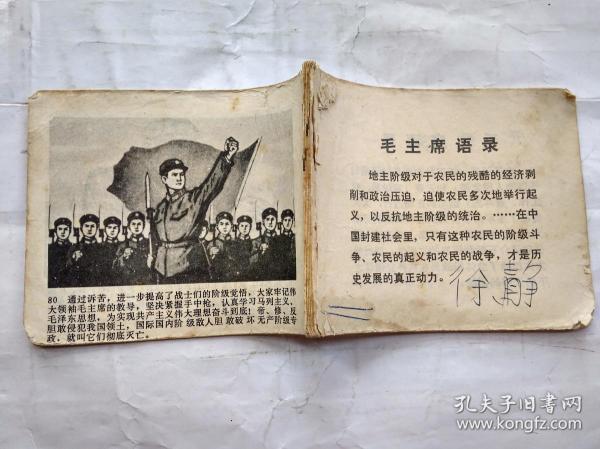 80 通过诉苦，进一步提高了战士们的阶级觉悟，大家牢记伟
大领袖毛主席的教导，坚决紧握手中枪，认真学习马列主义、
毛泽东思想，为实现共产主义伟大理想奋斗到底！帝、修、反
胆敢侵犯我国领土，国际国内阶级敌人胆敢破坏无产阶级专
政，就叫它们彻底灭亡。
毛主席语录
地主阶级对于农民的残酷的经济剥
削和政治压迫，迫使农民多次地举行起
义，以反抗地主阶级的统治。……在中
国封建社会里，只有这种农民的阶级斗
争、农民的起义和农民的战争，才是历
史发展的真正动力。
徐静
孔夫子旧书网
www.kongfz.com